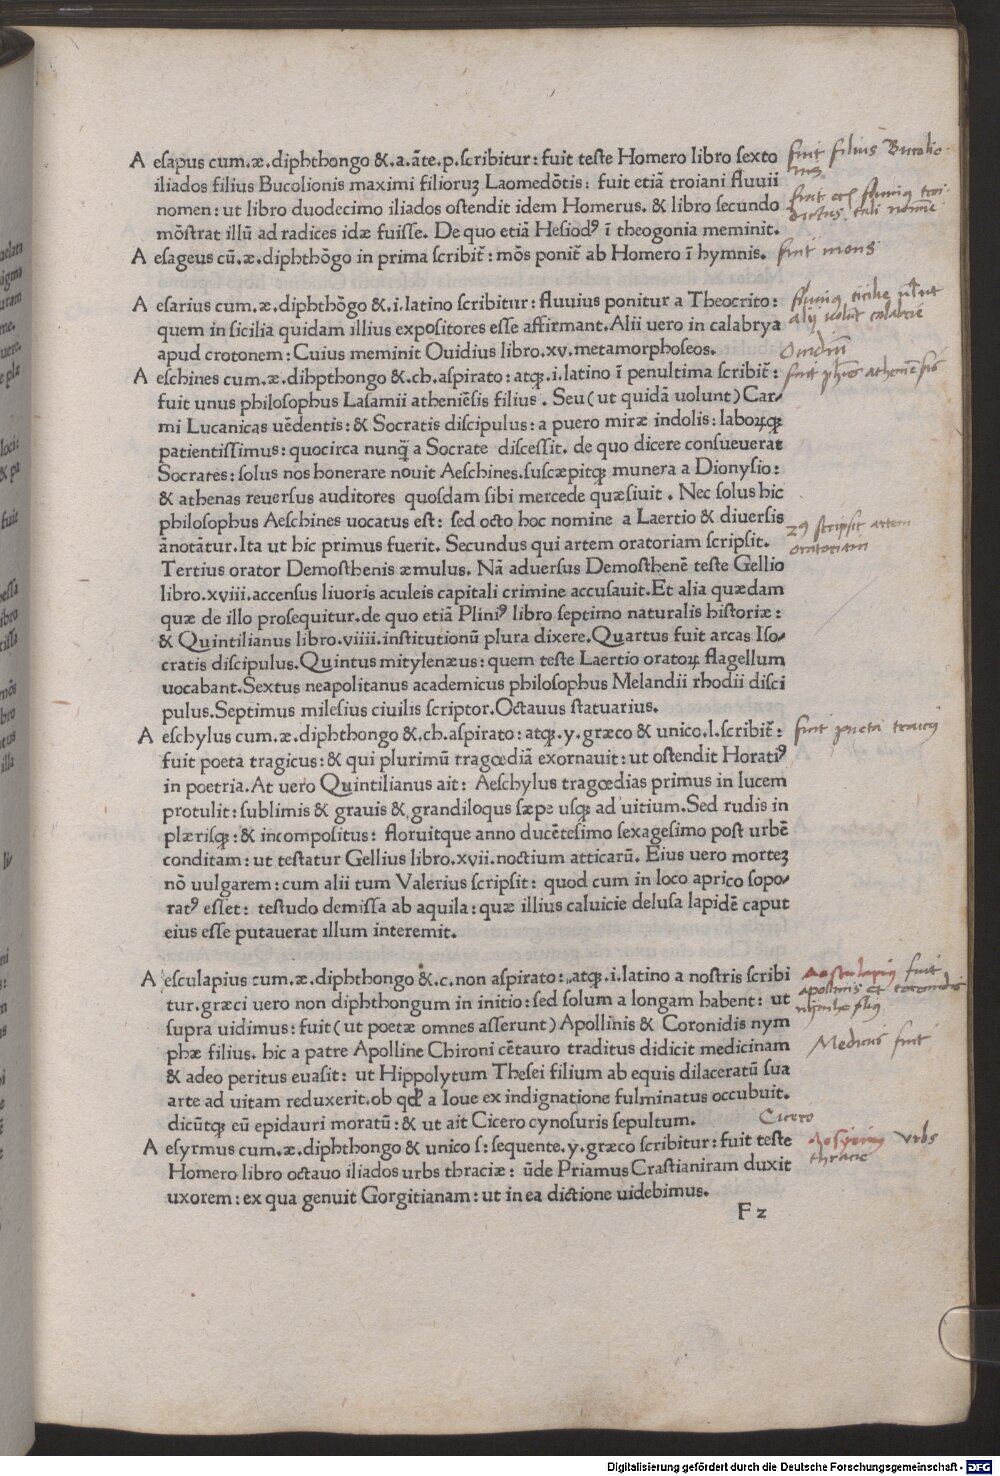 A esapus cum.æ.diphthongo &.a.āte.p.scribitur: fuit teste Homero libro sexto
iliados filius Bucolionis maximi filioruꝫ Laomedōtis: fuit etiā troiani fluuii
nomen: ut libro duodecimo iliados ostendit idem Homerus. & libro secundo
mōstrat illū ad radices idæ fuisse. De quo etiā Hesiodꝰ ī theogonia meminit.
A esageus cū.æ.diphthōgo in prima scribit̄: mōs ponit̄ ab Homero ī hymnis.
A esarius cum.æ.diphthōgo &.i.latino scribitur: fluuius ponitur a Theocrito:
quem in sicilia quidam illius expositores esse affirmant. Alii uero in calabrya
apud crotonem: Cuius meminit Ouidius libro.xv.metamorphoseos.
A eschines cum.æ.dihpthongo &.ch.aspirato: atqꝫ.i.latino ī penultima scribit̄:
fuit unus philosophus Lasamii atheniēsis filius. Seu(ut quidā uolunt)Car-
mi Lucanicas uēdentis: & Socratis discipulus: a puero miræ indolis: laboꝝqꝫ
patientissimus: quocirca nunq̄ a Socrate discessit. de quo dicere consueuerat
Socrates: solus nos honerare nouit Aeschines.suscæpitqꝫ munera a Dionysio:
& athenas reuersus auditores quosdam sibi mercede quæsiuit. Nec solus hic
philosophus Aeschines uocatus est: sed octo hoc nomine a Laertio & diuersis
ānotātur.Ita ut hic primus fuerit. Secundus qui artem oratoriam scripsit.
Tertius orator Demosthenis æmulus. Nā aduersus Demosthenē teste Gellio
libro.xviii.accensus liuoris aculeis capitali crimine accusauit.Et alia quædam
quæ de illo prosequitur.de quo etiā Pliniꝰ libro septimo naturalis historiæ:
& Quintilianus libro.viiii.institutionū plura dixere.Quartus fuit arcas Iso-
cratis discipulus.Quintus mitylenæus: quem teste Laertio oratoꝝ flagellum
uocabant.Sextus neapolitanus academicus philosophus Melandii rhodii disci
pulus.Septimus milesius ciuilis scriptor.Octauus statuarius.
A eschylus cum.æ.diphthongo &.ch.aspirato: atqꝫ.y.græco & unico.l.scribit̄:
fuit poeta tragicus: & qui plurimū tragœdiā exornauit: ut ostendit Horatiꝰ
in poetria.At uero Quintilianus ait: Aeschylus tragœdias primus in lucem
protulit: sublimis & grauis & grandiloqus sæpe usqꝫ ad uitium.Sed rudis in
plærisqꝫ: & incompositus: floruitque anno ducētesimo sexagesimo post urbē
conditam: ut testatur Gellius libro.xvii.noctium atticarū. Eius uero morteꝫ
nō uulgarem: cum alii tum Valerius scripsit: quod cum in loco aprico sopo-
ratꝰ esset: testudo demissa ab aquila: quæ illius caluicie delusa lapidē caput
eius esse putauerat illum interemit.
A esculapius cum.æ.diphthongo &.c.non aspirato: atqꝫ.i.latino a nostris scribi
tur.græci uero non diphthongum in initio: sed solum a longam habent: ut
supra uidimus: fuit(ut poetæ omnes asserunt)Apollinis & Coronidis nym
phæ filius. hic a patre Apolline Chironi cētauro traditus didicit medicinam
& adeo peritus euasit: ut Hippolytum Thesei filium ab equis dilaceratū sua
arte ad uitam reduxerit.ob qd̄ a Ioue ex indignatione fulminatus occubuit.
dicūtqꝫ eū epidauri moratū: & ut ait Cicero cynosuris sepultum.
A esyrmus cum.æ.diphthongo & unico s: sequente.y.græco scribitur: fuit teste
Homero libro octauo iliados urbs thraciæ: ūde Priamus Crastianiram duxit
uxorem: ex qua genuit Gorgitianam: ut in ea dictione uidebimus.
F2
fuit filius Bucolio
nis
fuit mons
Ouidiū
scripsit artem
oratoriam
fuit poeta
fuit
apollinis et coronidis
Medicus fuit
Cicero
urbs
thracie
Digitalisierung gefördert durch die Deutsche Forschungsgemeinschaft - DFG